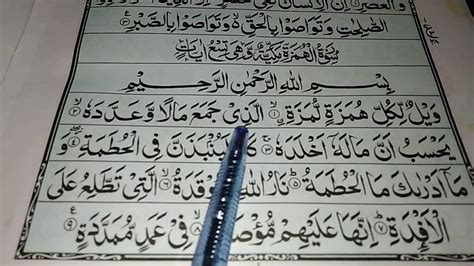 وَالْعَصْرِ ۙ اِنَّ الْاِنْسَانَ لَفِىْ
الصّٰلِحٰتِ وَتَوَاصَوْا بِالْحَقِّ ۙ وَتَوَاصَوْا بِالصَّبْرِ
سُوْرَةُ الْهُمَزَةِ مَكِّيَّةٌ وَّهِىَ تِسْعُ اٰيَاتٍ
بِسْمِ اللّٰهِ الرَّحْمٰنِ الرَّحِيْمِ
وَيْلٌ لِّكُلِّ هُمَزَةٍ لُّمَزَةٍ ۙ۝۱ الَّذِىْ جَمَعَ مَالًا وَّعَدَّدَهٗ ۙ۝۲
يَحْسَبُ اَنَّ مَالَهٗۤ اَخْلَدَهٗ ۚ۝۳ لَيُنْۢبَذَنَّ فِى الْحُطَمَةِ ۝۴
وَمَاۤ اَدْرٰىكَ مَا الْحُطَمَةُ ؕ۝۵ نَارُ اللّٰهِ الْمُوْقَدَةُ ۙ۝۶ الَّتِىْ تَطَّلِعُ عَلَى
الْاَفْـِٕدَةِ ؕ۝۷ اِنَّهَا عَلَيْهِمْ مُّؤْصَدَةٌ ۙ۝۸ فِىْ عَمَدٍ مُّمَدَّدَةٍ ۝۹